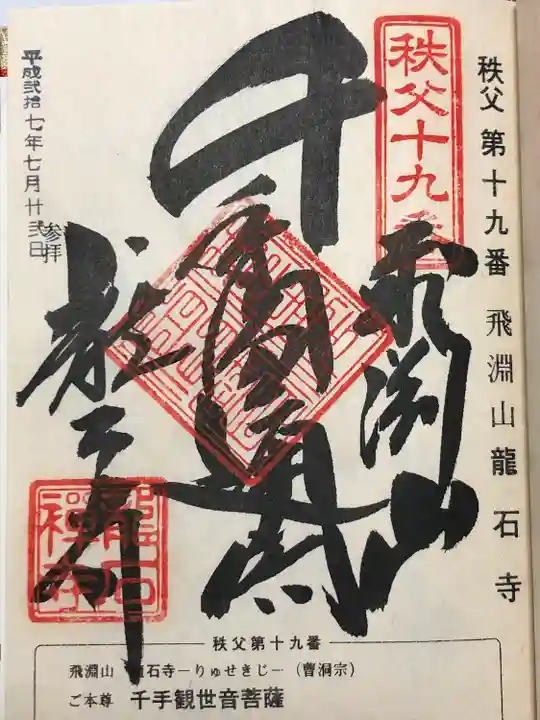 秩父第十九番 飛淵山龍石寺
秩父十九番
飛淵山
千手
平成弐拾七年七月廿弐日
参拝
龍石
禅寺
秩父第十九番
飛淵山 石寺ーりゅせきじー(曹洞宗)
ご本尊 千手観世音菩薩